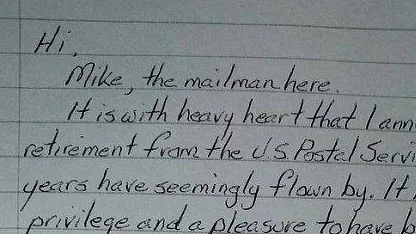 Hi,
Mike, the mailman here.
It is with heavy heart that I ann
retirement from the U.S Postal Servi
years have seemingly flown by. It
privilege and a pleasure to have b